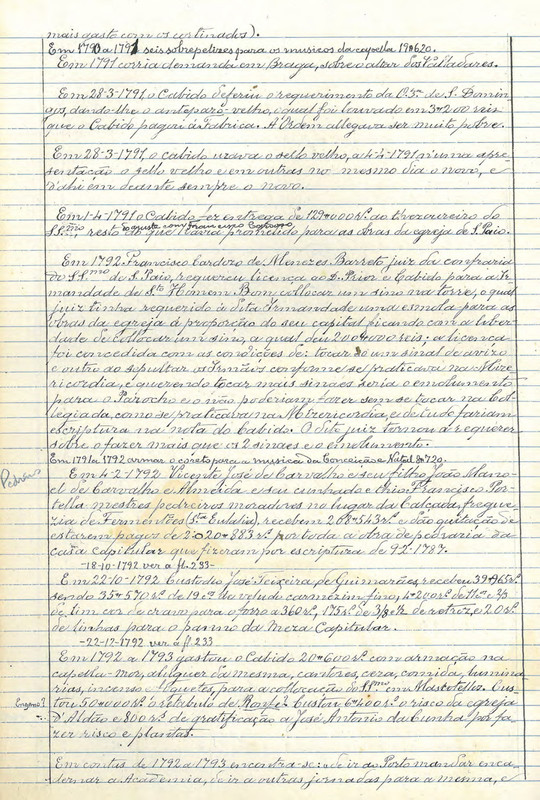 mais gasto com os cortinados).
Em 1790 a 1791 seis sobrepelizes para os musicos da capella 19$620.
Em 1791 corria demanda em Braga, sobre o altar dos Valladares.
Em 28-3-1791, o Cabido deferiu o requerimento da O. 3ª de S. Domin-
gos, dando-lhe o anteparo velho, o qual foi louvado em 3$200 reis
que o Cabido pagou á Fabrica. A Ordem allegava ser muito pobre.
Em 28-3-1791, o cabido usava o sello velho, a 4-4-1791 n'uma apre-
sentação o sello velho e em outras no mesmo dia o novo, e
d'ahi em deante sempre o novo.
Em 1-4-1791 o Cabido fez entrega de 129$000 rs. ao thezoureiro do
SS.mo, resto do que havia promettido para as obras da egreja de S. Paio.
Em 1792 Francisco Cardozo de Menezes Barreto, juiz da confraria
do SS.mo de S. Paio, requereu licença ao D. Prior e Cabido para a Ir-
mandade de S.to Homem Bom collocar um sino na torre, o qual
juiz tinha requerido á dita Irmandade uma esmola para as
obras da egreja á proporção do seu capital ficando com a liber-
dade de collocar um sino, a qual deu 200$000 reis; a licença
foi concedida com as condições de: tocar só um sinal de avizo
e outro ao sepultar os Irmãos conforme se praticava na Mize-
ricordia, e querendo tocar mais sinaes seria o emolumento
para o Parocho e o não poderiam fazer sem se tocar na Col-
legiada, como se praticava na Mizericordia, e de tudo fariam
escriptura na nota do Cabido. O dito juiz tornou a requerer
sobre o fazer mais que os 2 sinaes e o emolumento.
Em 1791 a 1792 armar o coreto para a musica da Conceição e Natal 8$720.
Em 4-2-1792 Vicente José de Carvalho e seu filho João Mano-
el de Carvalho e Almeida e seu cunhado e thio Francisco Por-
tella mestres pedreiros moradores no lugar da Calçada, fregue-
zia de Fermentões (Sta Eulalia), recebem 208$543 rs. e dão quitação de
estarem pagos de 2:020$883 rs. por toda a obra de pedraria da
caza capitular que fizeram por escriptura de 1787.
-18-10-1792 ver a fl. 233-
Em 22-10-1792 Custodio José Teixeira de Guimarães, recebeu
sendo 35$570 rs. de 19 de veludo carmezim fino,
cor de cravo para o forro a 360 rs., de retroz, e 20 rs.
de linhas para o panno da Meza Capitular.
-22-12-1792 ver a fl. 233
Em 1792 a 1793 gastou o Cabido 20$600 rs. com armação na
capella-mor, aluguer da mesma, cantores, cera, comida, lumina-
rias, incenso e foguetes, para a collocação do SS.mo em Mascotellos. Cus-
tou 50$000 rs. o retabulo de Custou 6$400 rs. o risco da egreja
d'Aldão e 800 rs. de gratificação a José Antonio da Cunha por fa-
zer risco e plantas.
Em contas de 1792 a 1793 encontra-se: de ir ao Porto mandar enca-
dernar a Academia, de ir a outras jornadas para a mesma, e